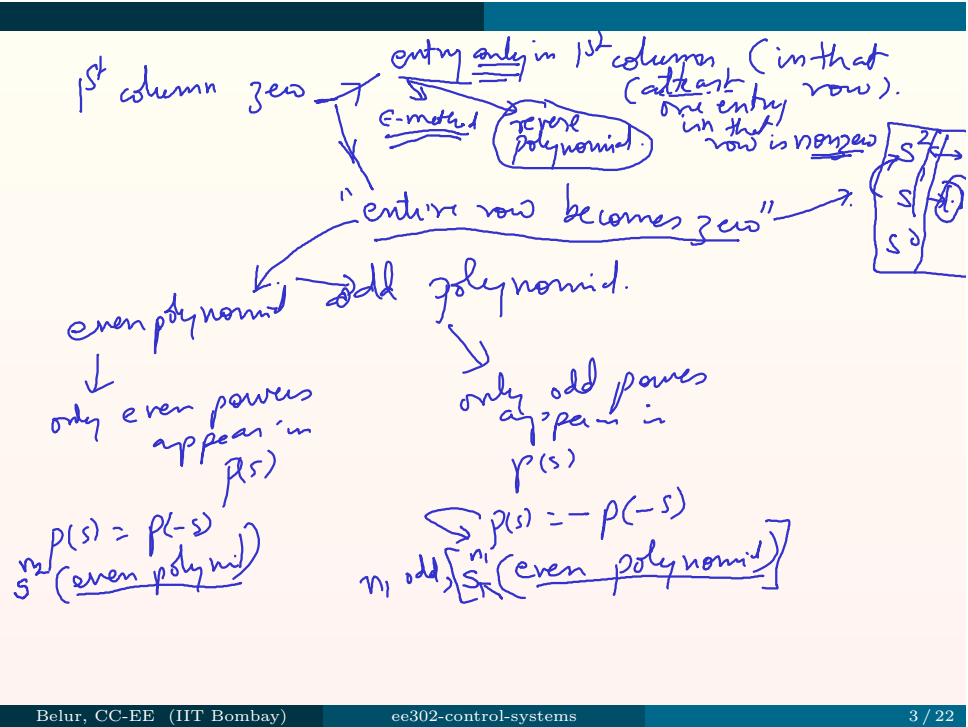 1st column zero → entry only in 1st column (in that row).
(atleast one entry in that row is nonzero
ϵ-method
reverse polynomial.
s²
s
s⁰
"entire row becomes zero"
even polynomial
odd polynomial.
only even powers appear in p(s)
only odd powers appear in p(s)
p(s) = p(-s)
p(s) = - p(-s)
s^n₂ (even polynmil)
n₁ odd, [s^n₁ (even polynomial)]
Belur, CC-EE (IIT Bombay)
ee302-control-systems
3 / 22